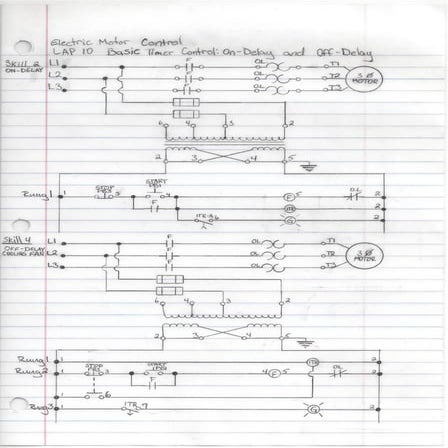 Electric Motor Control
LAP 10 Basic Timer Control: On-Delay and Off-Delay
Skill 2
ON-DELAY
L1 F OL T1
L2 T2 3 Ø
L3 T3 MOTOR
6 4 3 2
2 3 4 5
Rung 1 1 STOP PB1 3 START PB1 4 F 5 OL 2
F 1TR 2
1TR-3 6 G 2
Skill 4
OFF-DELAY
COOLING FAN
L1 F OL T1
L2 OL T2 3 Ø
L3 OL T3 MOTOR
6 4 3 2
Rung 1 1 1TR 2
Rung 2 1 STOP 3 START 4 F 5 OL 2
F
6
Rung 3 1TR 7 G 2